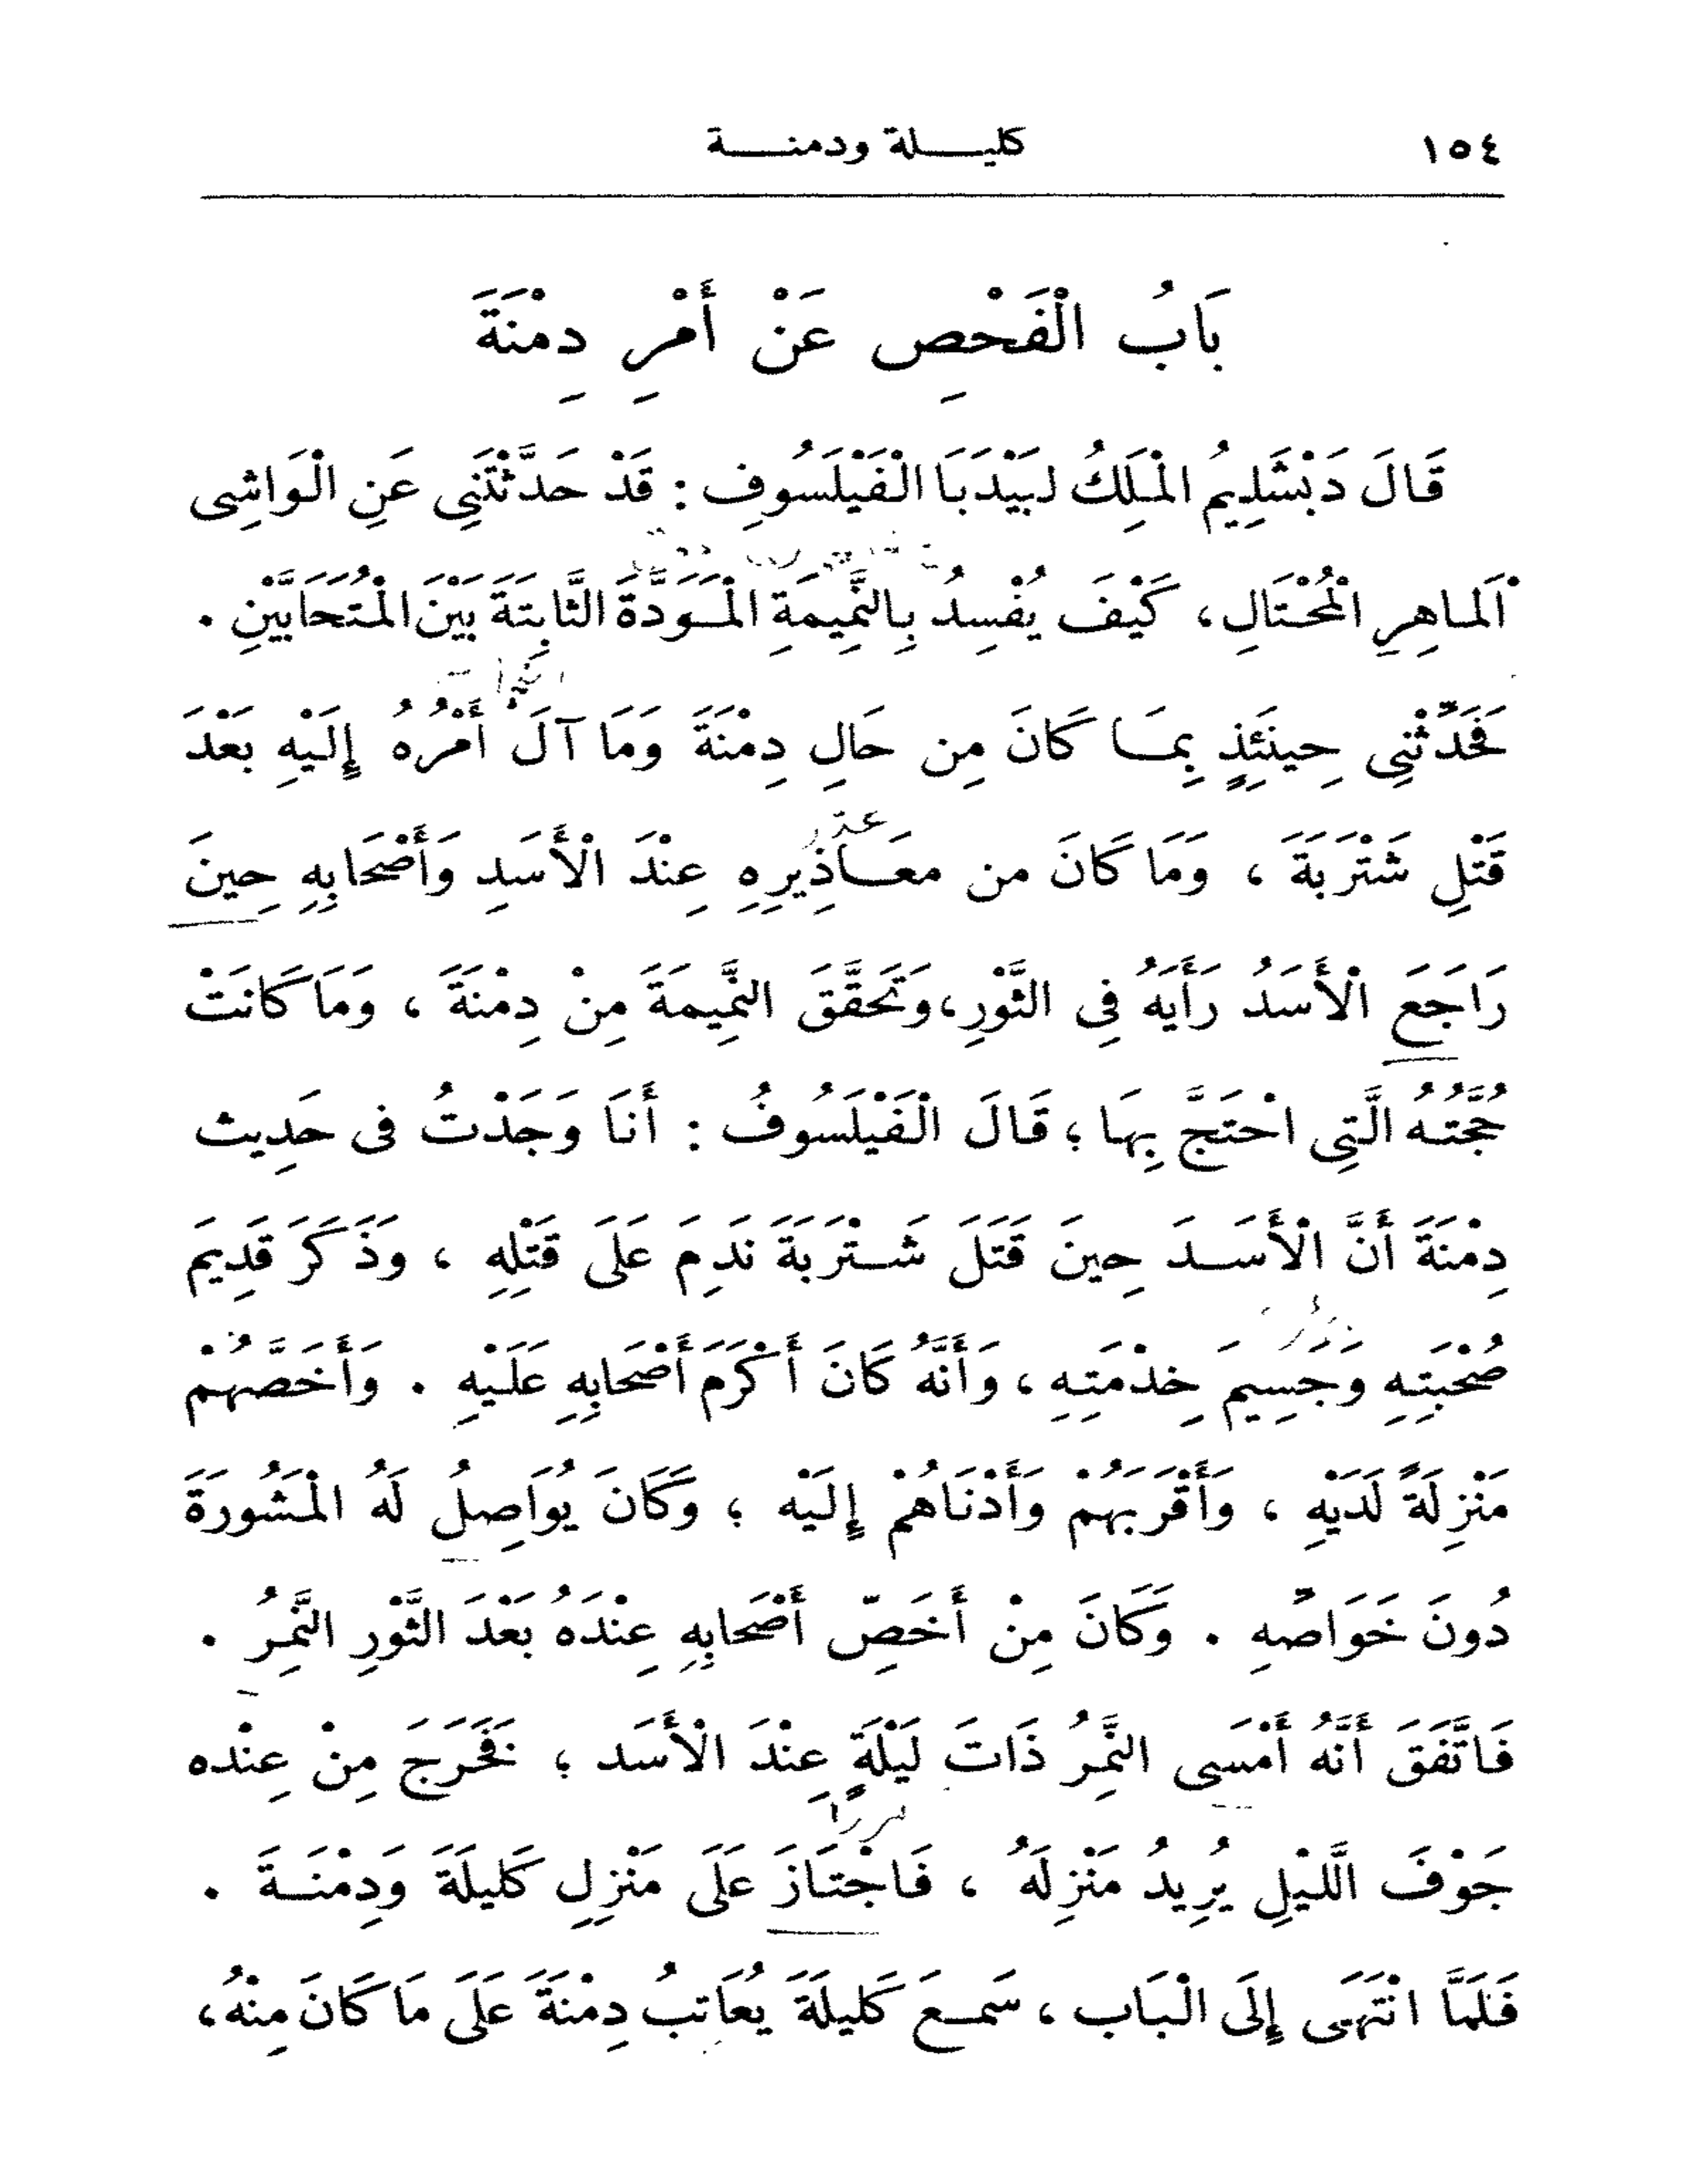 ١٥٤
كليلة ودمنة
بَابُ الْفَحْصِ عَنْ أَمْرِ دِمْنَةَ
قَالَ دَبْشَلِيمُ الْمَلِكُ لِبَيْدَبَا الْفَيْلَسُوفِ : قَدْ حَدَّثْتَنِى عَنِ الْوَاشِى
اَلْماهِرِ الْمُحْتَالِ ، كَيْفَ يُفْسِدُ بِالنَّمِيمَةِ الْمَوَدَّةَ الثَّابِتَةَ بَيْنَ الْمُتَحَابَّيْنِ .
فَحَدِّثْنِى حِينَئِذٍ بِمَا كَانَ مِن حَالِ دِمْنَةَ وَمَا آلَ أَمْرُهُ إِلَيْهِ بَعْدَ
قَتْلِ شَتْرَبَةَ ، وَمَا كَانَ من معَاذِيرِهِ عِنْدَ الْأَسَدِ وَأَصْحَابِهِ حِينَ
رَاجَعَ الْأَسَدُ رَأْيَهُ فِى الثَّوْرِ ، وَتَحَقَّقَ النَّمِيمَةَ مِنْ دِمْنَةَ ، وَمَا كَانَتْ
حُجَّتُهُ الَّتِى احْتَجَّ بِهَا ؛ قَالَ الْفَيْلَسُوفُ : أَنَا وَجَدْتُ فى حَدِيث
دِمْنَةَ أَنَّ الْأَسَدَ حِينَ قَتَلَ شَتْرَبَةَ نَدِمَ عَلَى قَتْلِهِ ، وَذَكَرَ قَدِيمَ
صُحْبَتِهِ وَجَسِيمَ خِدْمَتِهِ ، وَأَنَّهُ كَانَ أَكْرَمَ أَصْحَابِهِ عَلَيْهِ . وَأَخَصَّهُمْ
مَنْزِلَةً لَدَيْهِ ، وَأَقْرَبَهُمْ وَأَدْنَاهُمْ إِلَيْه ؛ وَكَانَ يُوَاصِلُ لَهُ الْمَشُورَةَ
دُونَ خَوَاصِّهِ . وَكَانَ مِنْ أَخَصِّ أَصْحَابِهِ عِنْدَهُ بَعْدَ الثَّوْرِ النَّمِرُ .
فَاتَّفَقَ أَنَّهُ أَمْسَى النَّمِرُ ذَاتَ لَيْلَةٍ عِنْدَ الْأَسَد ؛ فَخَرَجَ مِنْ عِنْده
جَوْفَ الَّليْلِ يُرِيدُ مَنْزِلَهُ ، فَاجْتَازَ عَلَى مَنْزِلِ كَلِيلَةَ وَدِمْنَةَ .
فَلَمَّا انْتَهَى إِلَى الْبَاب ، سَمعَ كَلِيلَةَ يُعَاتبُ دِمْنَةَ عَلَى مَا كَانَ مِنْهُ ،